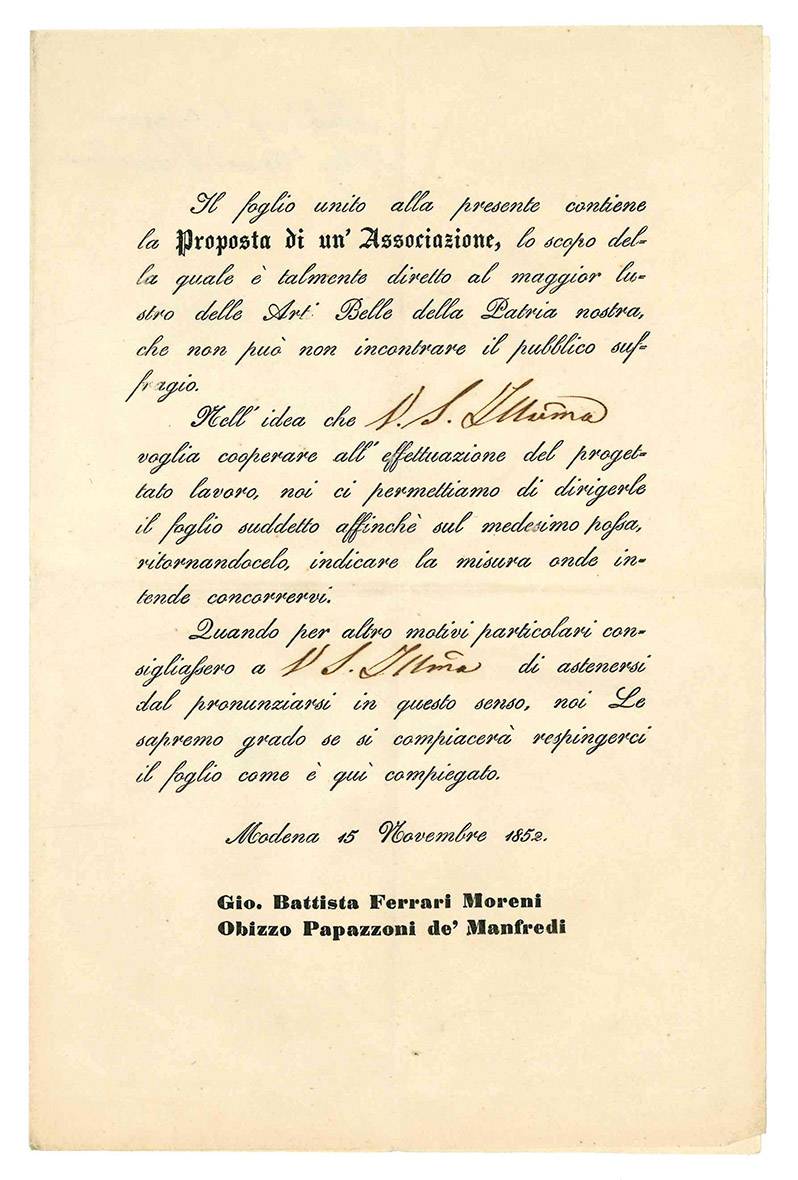 Il foglio unito alla presente contiene
la Proposta di un' Associazione, lo scopo del=
la quale è talmente diretto al maggior lu=
stro delle Arti Belle della Patria nostra,
che non può non incontrare il pubblico suf=
fragio.
Nell' idea che V. S. Illuma
voglia cooperare all' effettuazione del proget=
tato lavoro, noi ci permettiamo di dirigerle
il foglio suddetto affinchè sul medesimo poſsa,
ritornandocelo, indicare la misura onde in=
tende concorrervi.
Quando per altro motivi particolari con=
sigliaſsero a V S. Illma di astenersi
dal pronunziarsi in questo senso, noi Le
sapremo grado se si compiacerà respingerci
il foglio come è quì compiegato.
Modena 15 Novembre 1852.
Gio. Battista Ferrari Moreni
Obizzo Papazzoni de' Manfredi